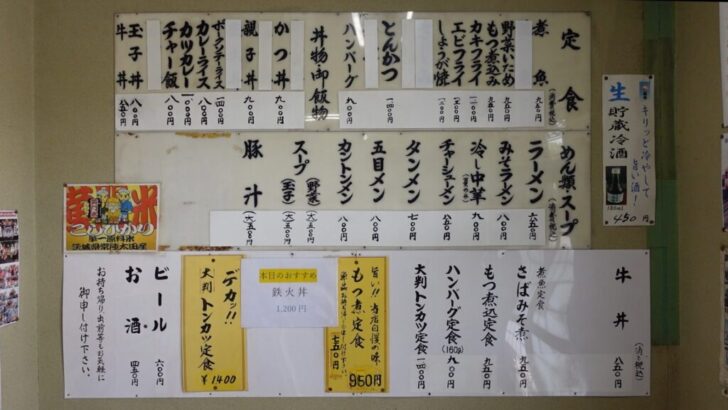 定食
(消費税込)
煮魚 九五〇円
野菜いため
もつ煮込み 九五〇円
カキフライ
エビフライ
しょうが焼
とんかつ 一、四〇〇円
ハンバーグ 九〇〇円
丼物・御飯物
かつ丼 九〇〇円
親子丼 九〇〇円
ポークソテーライス 一四〇〇円
カレーライス 八〇〇円
カツカレー 一、〇〇〇円
チャー飯 八〇〇円
玉子丼 八〇〇円
牛丼 八五〇円
めん類スープ
(消費税込)
ラーメン 六五〇円
みそラーメン 八〇〇円
冷し中華 九〇〇円
チャーシューメン
タンメン 七〇〇円
五目メン 八〇〇円
カントンメン 八〇〇円
スープ
(野菜) 六五〇円
(玉子) 六五〇円
豚汁
生貯蔵冷酒
キリッと冷やして
旨い酒!
450円
米
コシヒカリ
第一原料米
茨城県常陸太田産
牛丼 八五〇円
煮魚定食
さばみそ煮 九五〇円
もつ煮込定食 九五〇円
ハンバーグ定食(150g) 九〇〇円
大判トンカツ定食 一、四〇〇円
旨い!!当店自慢の味
もつ煮定食
950円
本日のおすすめ
鉄火丼
1,200円
デカッ!!
大判トンカツ定食
¥1400
ビール 六〇〇円
お酒 四五〇円
お持ち帰り、出前等もお気軽に
御申し付け下さい。